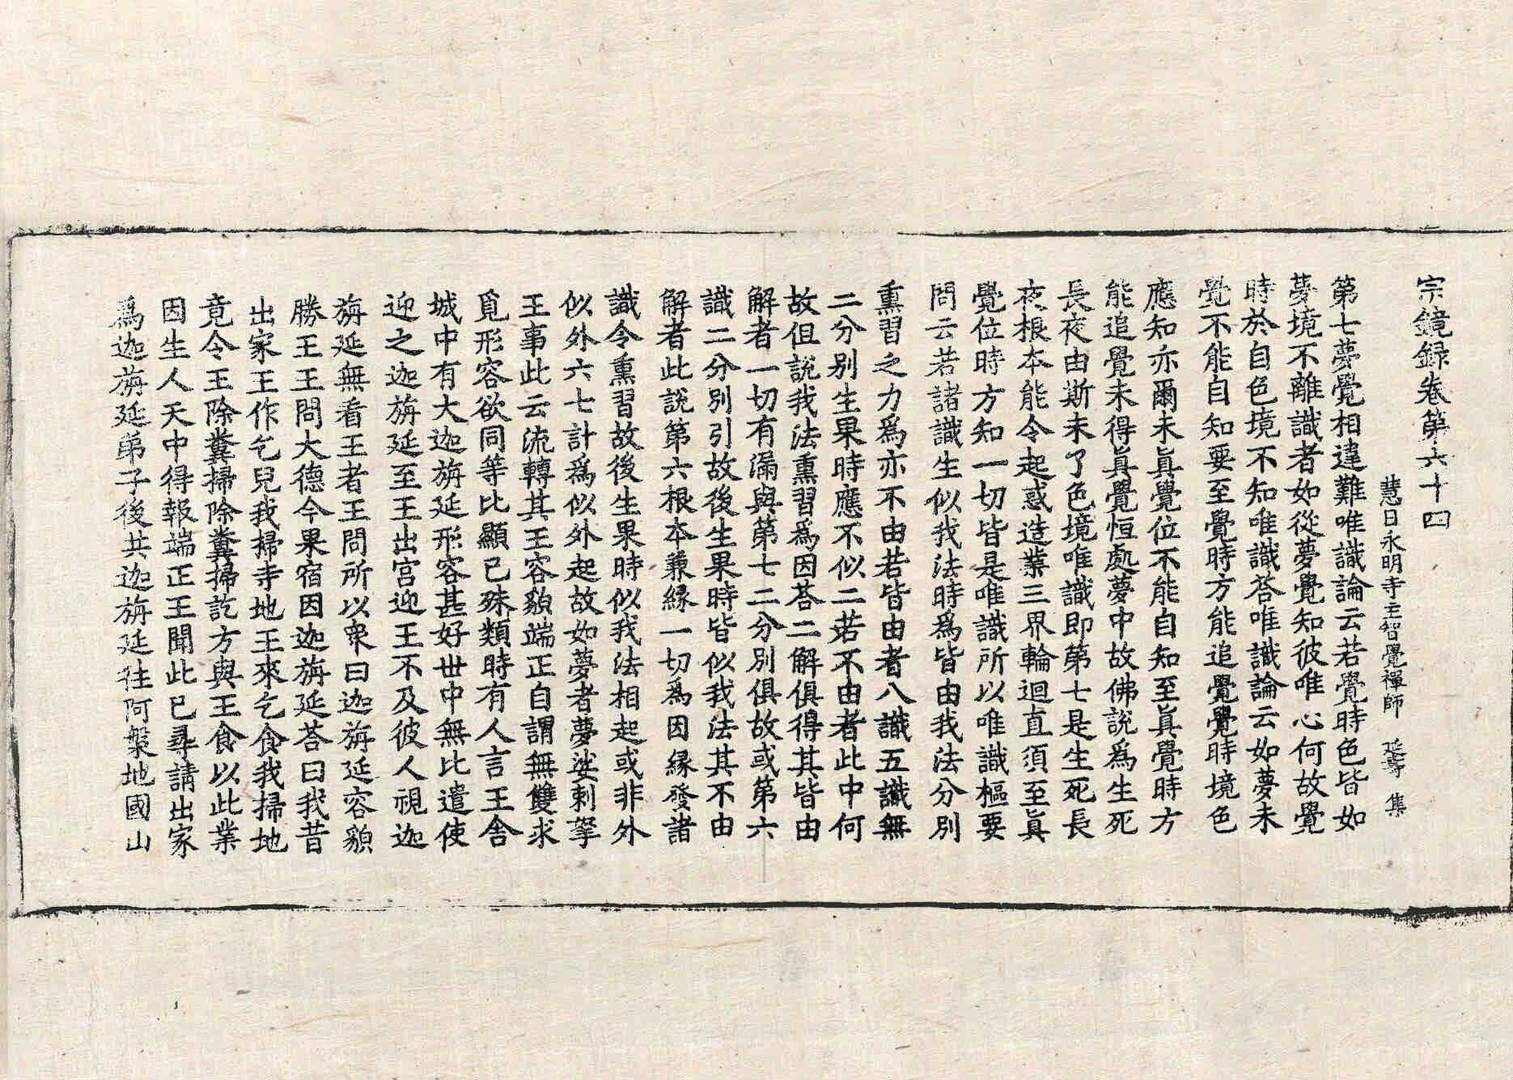 宗鏡録卷第六十四
慧日永明寺主智覺禪師 延壽 集
第七夢覺相違難唯識論云若覺時色皆如
夢境不離識者如從夢覺知彼唯心何故覺
時於自色境不知唯識答唯識論云如夢未
覺不能自知要至覺時方能追覺覺時境色
應知亦爾未眞覺位不能自知至眞覺時方
能追覺未得眞覺恒處夢中故佛說爲生死
長夜由斯未了色境唯識即第七是生死長
夜根本能令起惑造業三界輪迴直須至眞
覺位時方知一切皆是唯識所以唯識樞要
問云若諸識生似我法時爲皆由我法分別
熏習之力爲亦不由若皆由者八識五識無
二分別生果時應不似二若不由者此中何
故但說我法熏習爲因荅二解俱得其皆由
解者一切有漏與第七二分別俱故或第六
識二分別引故後生果時皆似我法其不由
解者此說第六根本兼緣一切爲因緣發諸
識令熏習故後生果時似我法相起或非外
似外六七計爲似外起故如夢者夢娑剌拏
王事此云流轉其王容貌端正自謂無雙求
覓形容欲同等比顯己殊類時有人言王舍
城中有大迦旃延形容甚好世中無比遣使
迎之迦旃延至王出宮迎王不及彼人視迦
旃延無看王者王問所以衆曰迦旃延容貌
勝王王問大德今果宿因迦旃延荅曰我昔
出家王作乞兒我掃寺地王來乞食我掃地
竟令王除糞掃除糞掃訖方與王食以此業
因生人天中得報端正王聞此已尋請出家
爲迦旃延弟子後共迦旃延往阿槃地國山